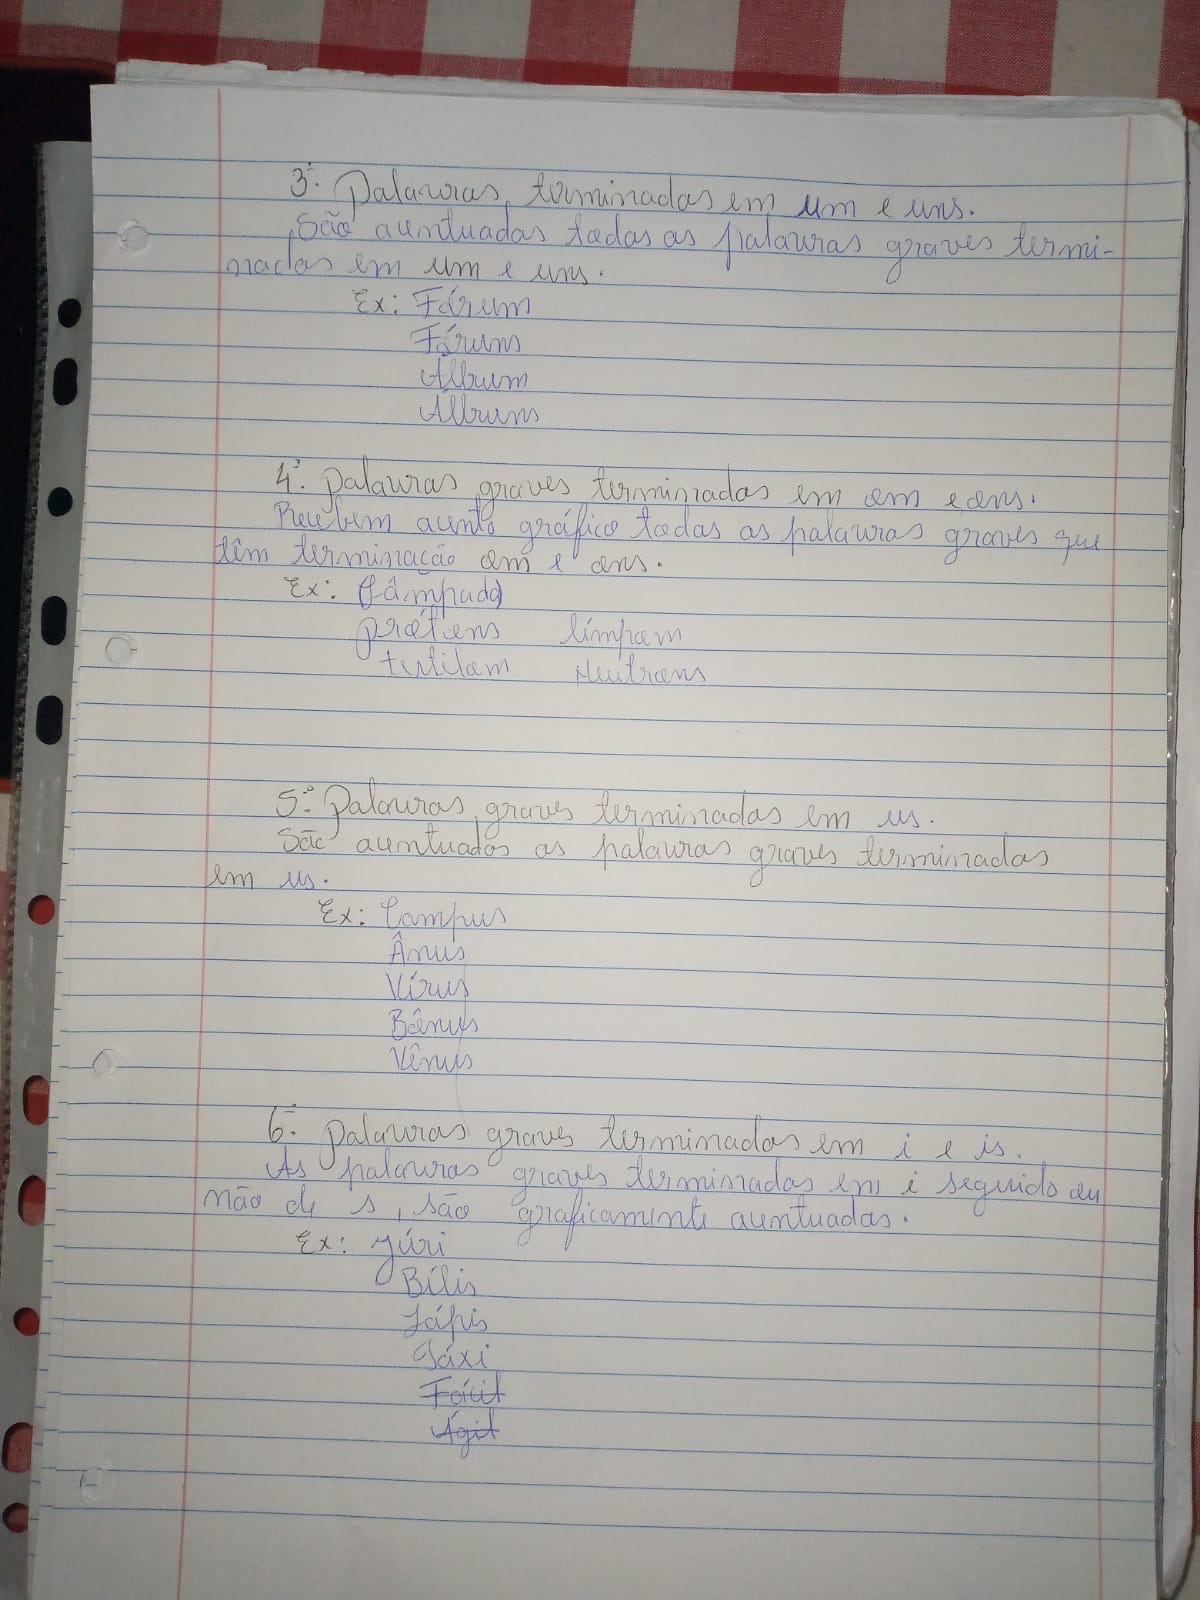 3º. Palavras terminadas em um e uns.
São acentuadas todas as palavras graves termi-
nadas em um e uns.
Ex: Fórum
Fóruns
Álbum
Álbuns
4º. Palavras graves terminadas em om e ons.
Recebem acento gráfico todas as palavras graves que
têm terminação om e ons.
Ex: (Lâmpada)
prótons
Neutrons
5º. Palavras graves terminadas em us.
São acentuadas as palavras graves terminadas
em us.
Ex: Campus
Ânus
Vírus
Bônus
Vênus
6º. Palavras graves terminadas em i e is.
As palavras graves terminadas em i seguido ou
não de s, são graficamente acentuadas.
Ex: júri
Bílis
Lápis
Táxi
Fácil
Ágil